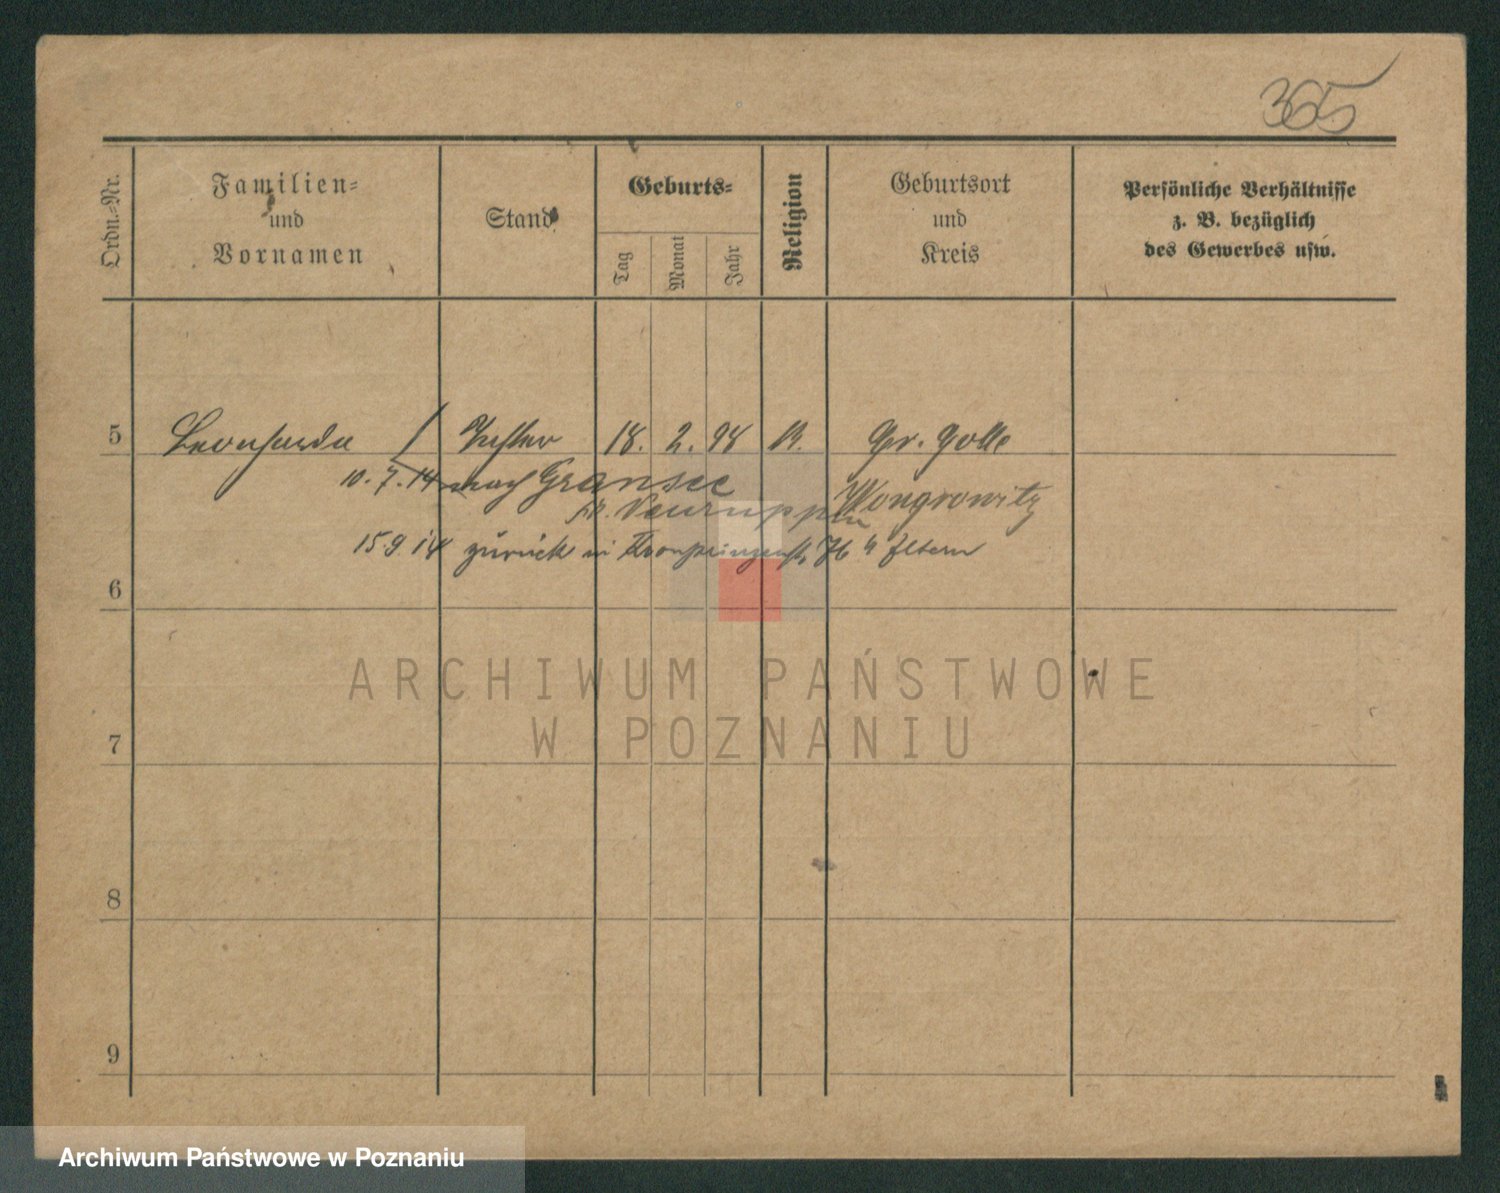 365
Ordn.-Nr.
Familien-
und
Vornamen
Stand
Geburts-
Tag
Monat
Jahr
Religion
Geburtsort
und
Kreis
Persönliche Verhältnisse
z. B. bezüglich
des Gewerbes usw.
5 Leonharda Tochter 18. 2. 98 K. Gr. Golle
10.7.14 nach Gransee
Kr. Neuruppin Wongrowitz
15.9.14 zurück Kronprinzenstr. 76 Eltern
6
ARCHIWUM PAŃSTWOWE
W POZNANIU
7
8
9
Archiwum Państwowe w Poznaniu